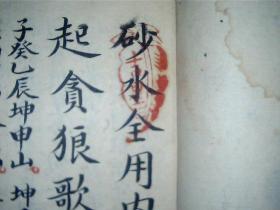 砂水全用内
起貪狼歌
子癸乙辰坤申山坤